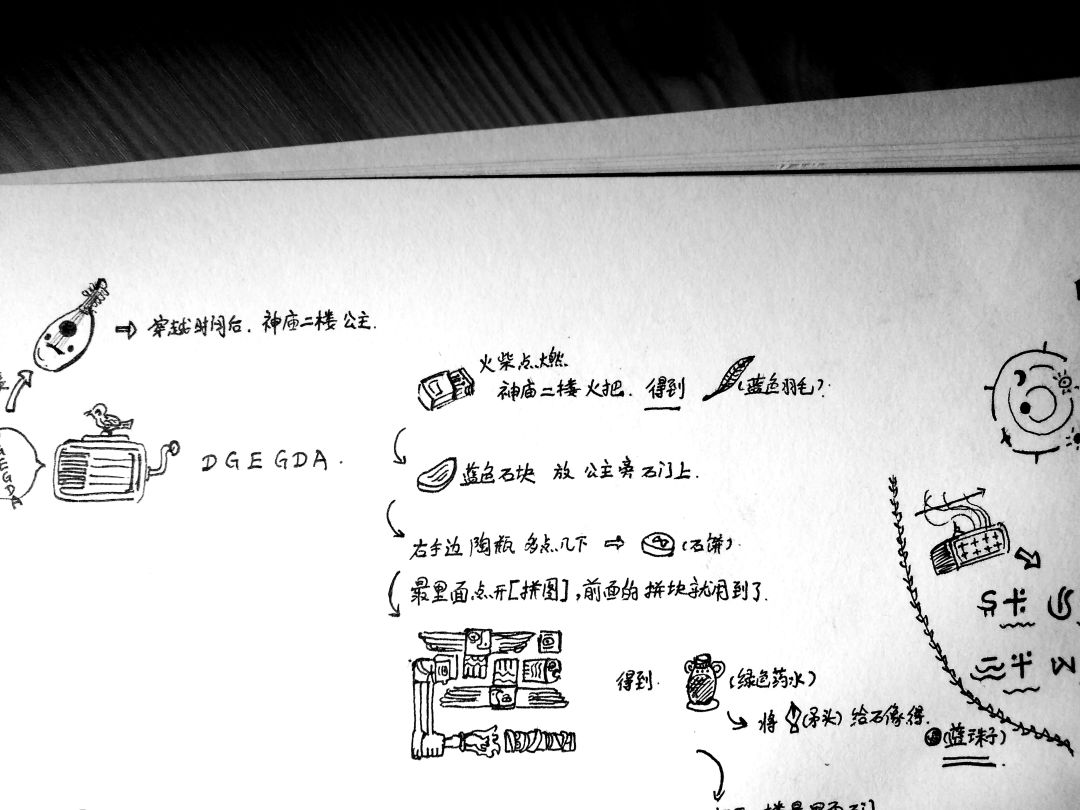 穿越时间后.神庙二楼公主.
DGEGDA.
火柴点燃
神庙二楼火把.得到(蓝色羽毛).
蓝色石块 放 公主旁石门上.
右手边 陶瓶 多点几下 ⇒ (石饼).
最里面点开[拼图],前面的拼块就用到了.
得到.(绿色药水)
将(矛头)给石像得.
(蓝珠子)